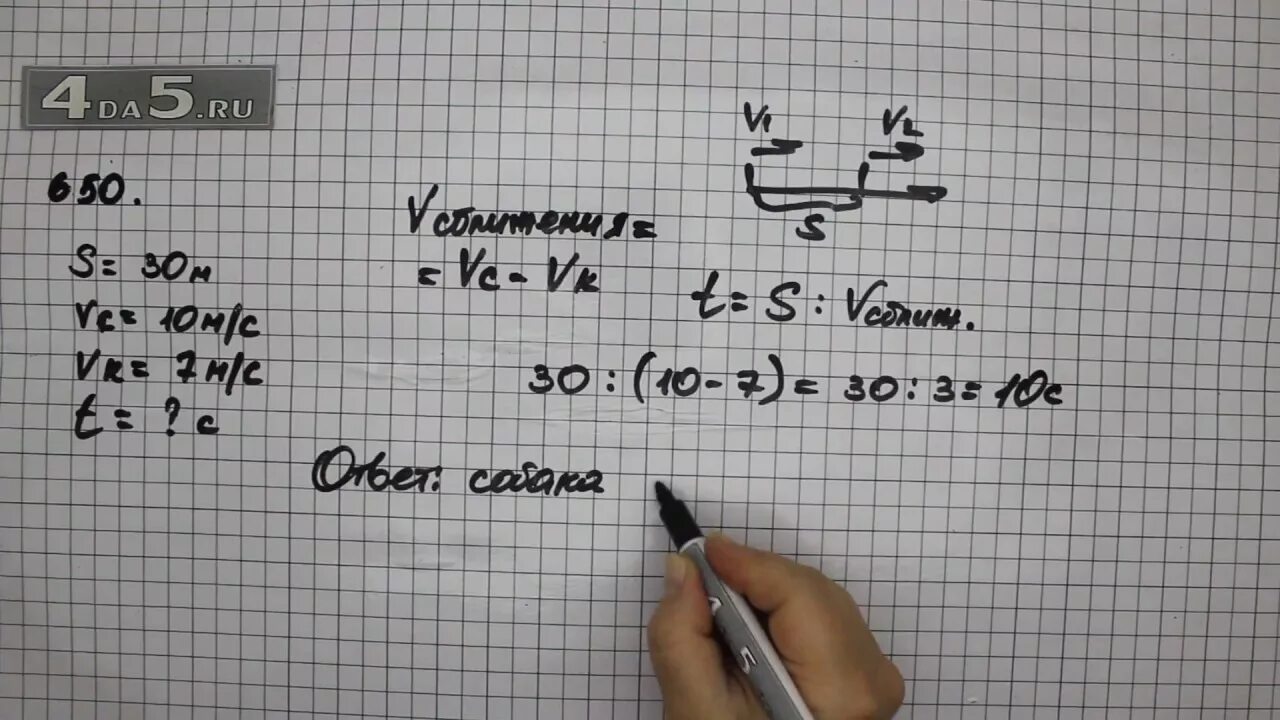 4DA5.RU
650.
S = 30м
Vс = 10м/с
Vк = 7м/с
t = ? с
Vсближения =
= Vс - Vк
V1 V2
S
t = S : Vсближ.
30 : (10 - 7) = 30 : 3 = 10с
Ответ: собака
5